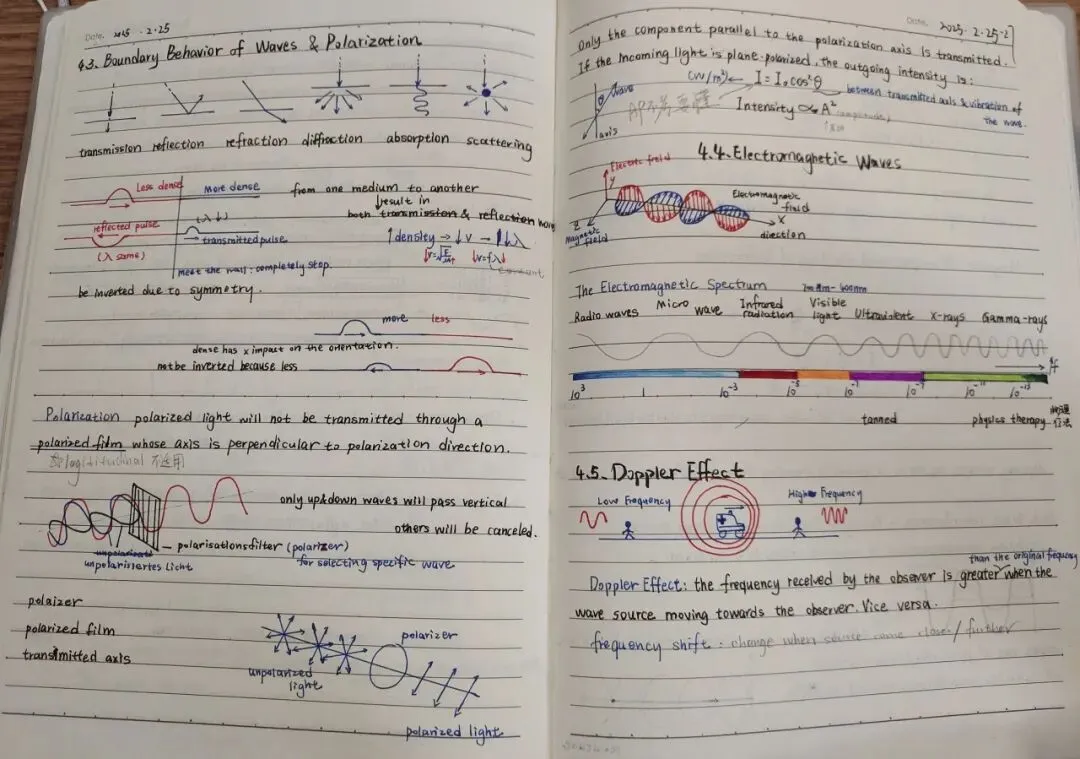 Date. 2025 . 2 . 25
4.3. Boundary Behavior of Waves & Polarization
transmission reflection refraction diffraction absorption scattering
Less dense More dense from one medium to another
result in
both transmission & reflection wave
reflected pulse (λ↓)
transmitted pulse
(λ same)
↑density → ↓v → ↓λ
↓v=f λ↓
constant
meet the wall : completely stop.
be inverted due to symmetry.
more less
dense has x impact on the orientation.
not be inverted because less
Polarization polarized light will not be transmitted through a
polarized film whose axis is perpendicular to polarization direction.
不适用
only up&down waves will pass vertical
others will be canceled.
polarisationsfilter (polarizer)
unpolarisiertes Licht for selecting specific wave
polaizer
polarized film
transmitted axis
polarizer
unpolarized
light
polarized light
Date. 2025. 2.25-2
Only the component parallel to the polarization axis is transmitted.
If the incoming light is plane-polarized, the outgoing intensity is:
(W/m²) ← I = I₀cos²θ
between transmitted axis & vibration of
the wave.
wave
axis
Intensity ∝ A²
(amplitude)
4.4. Electromagnetic Waves
Electric field
y
Electromagnetic
field
x
direction
z
Magnetic
field
The Electromagnetic Spectrum
Radio waves Micro wave Infrared radiation Visible light Ultraviolent X-rays Gamma-rays
f
10³ 1 10⁻³ 10⁻⁵ 10⁻⁷ 10⁻⁹ 10⁻¹¹ 10⁻¹³
tanned physics therapy
4.5. Doppler Effect
Low Frequency Higher Frequency
than the original frequency
Doppler Effect: the frequency received by the observer is greater when the
wave source moving towards the observer. Vice versa.
frequency shift : change when source come closer / further